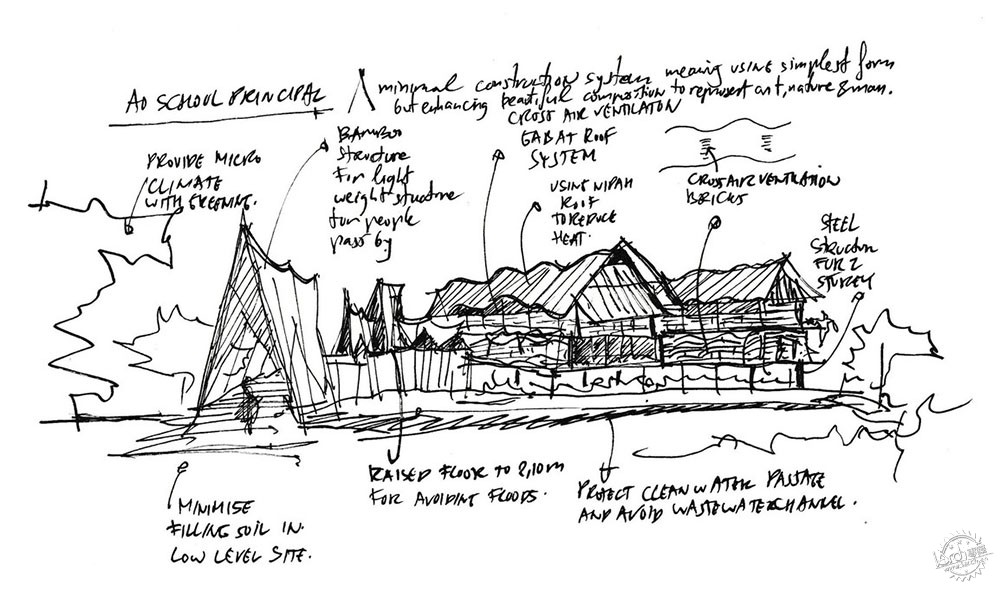 AO SCHOOL PRINCIPAL
minimal construction system meaning using simplest form
but enhancing beautiful composition to represent ant, nature & man.
CROSS AIR VENTILATON
GAB AT ROOF
SYSTEM
BAMBOO
structure
for light
weight structure
for people
pass by
PROVIDE MICRO
CLIMATE
WITH GREENING.
USING NIPAH
ROOF
TO REDUCE
HEAT.
CROSS AIR VENTILATION
BRICKS
STEEL
STRUCTURE
FOR 2
STOREY
MINIMISE
FILLING SOIL IN
LOW LEVEL SITE.
RAISED FLOOR TO 2,10m
FOR AVOIDING FLOODS.
PROTECT CLEAN WATER PASSAGE
AND AVOID WASTEWATER CHANNEL.